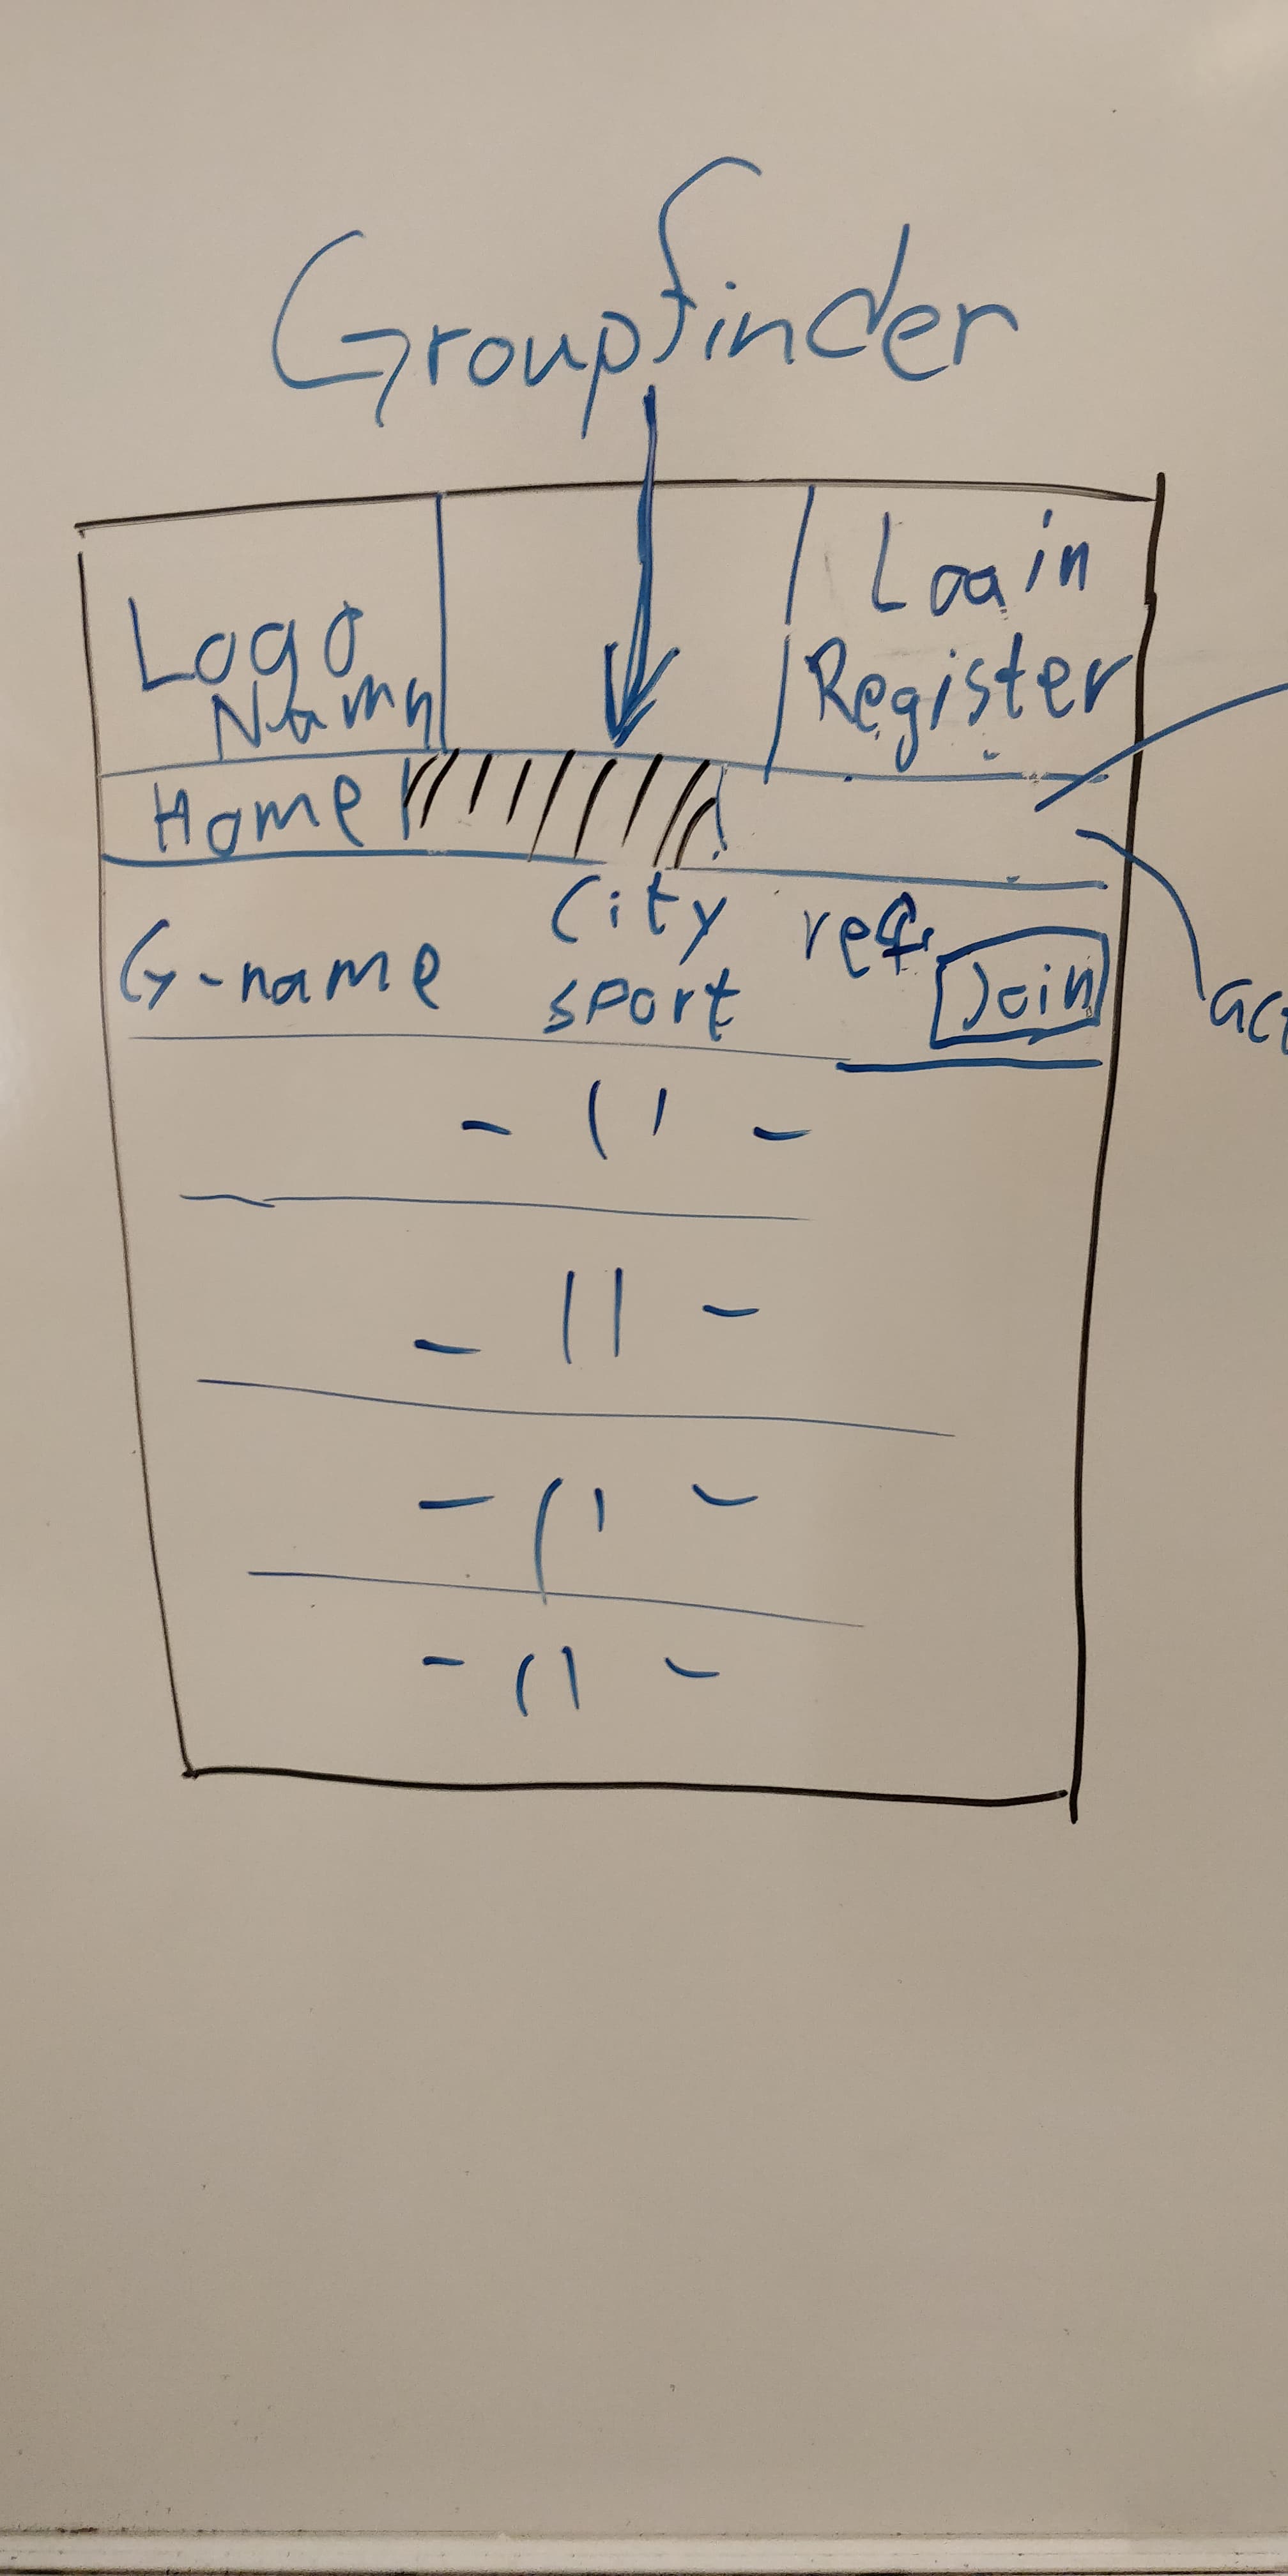 Groupfinder
Logo
Namn
Login
Register
Home
G-name
City
sport
Join
- 11 -
- 11 -
- 11 -
- 11 -